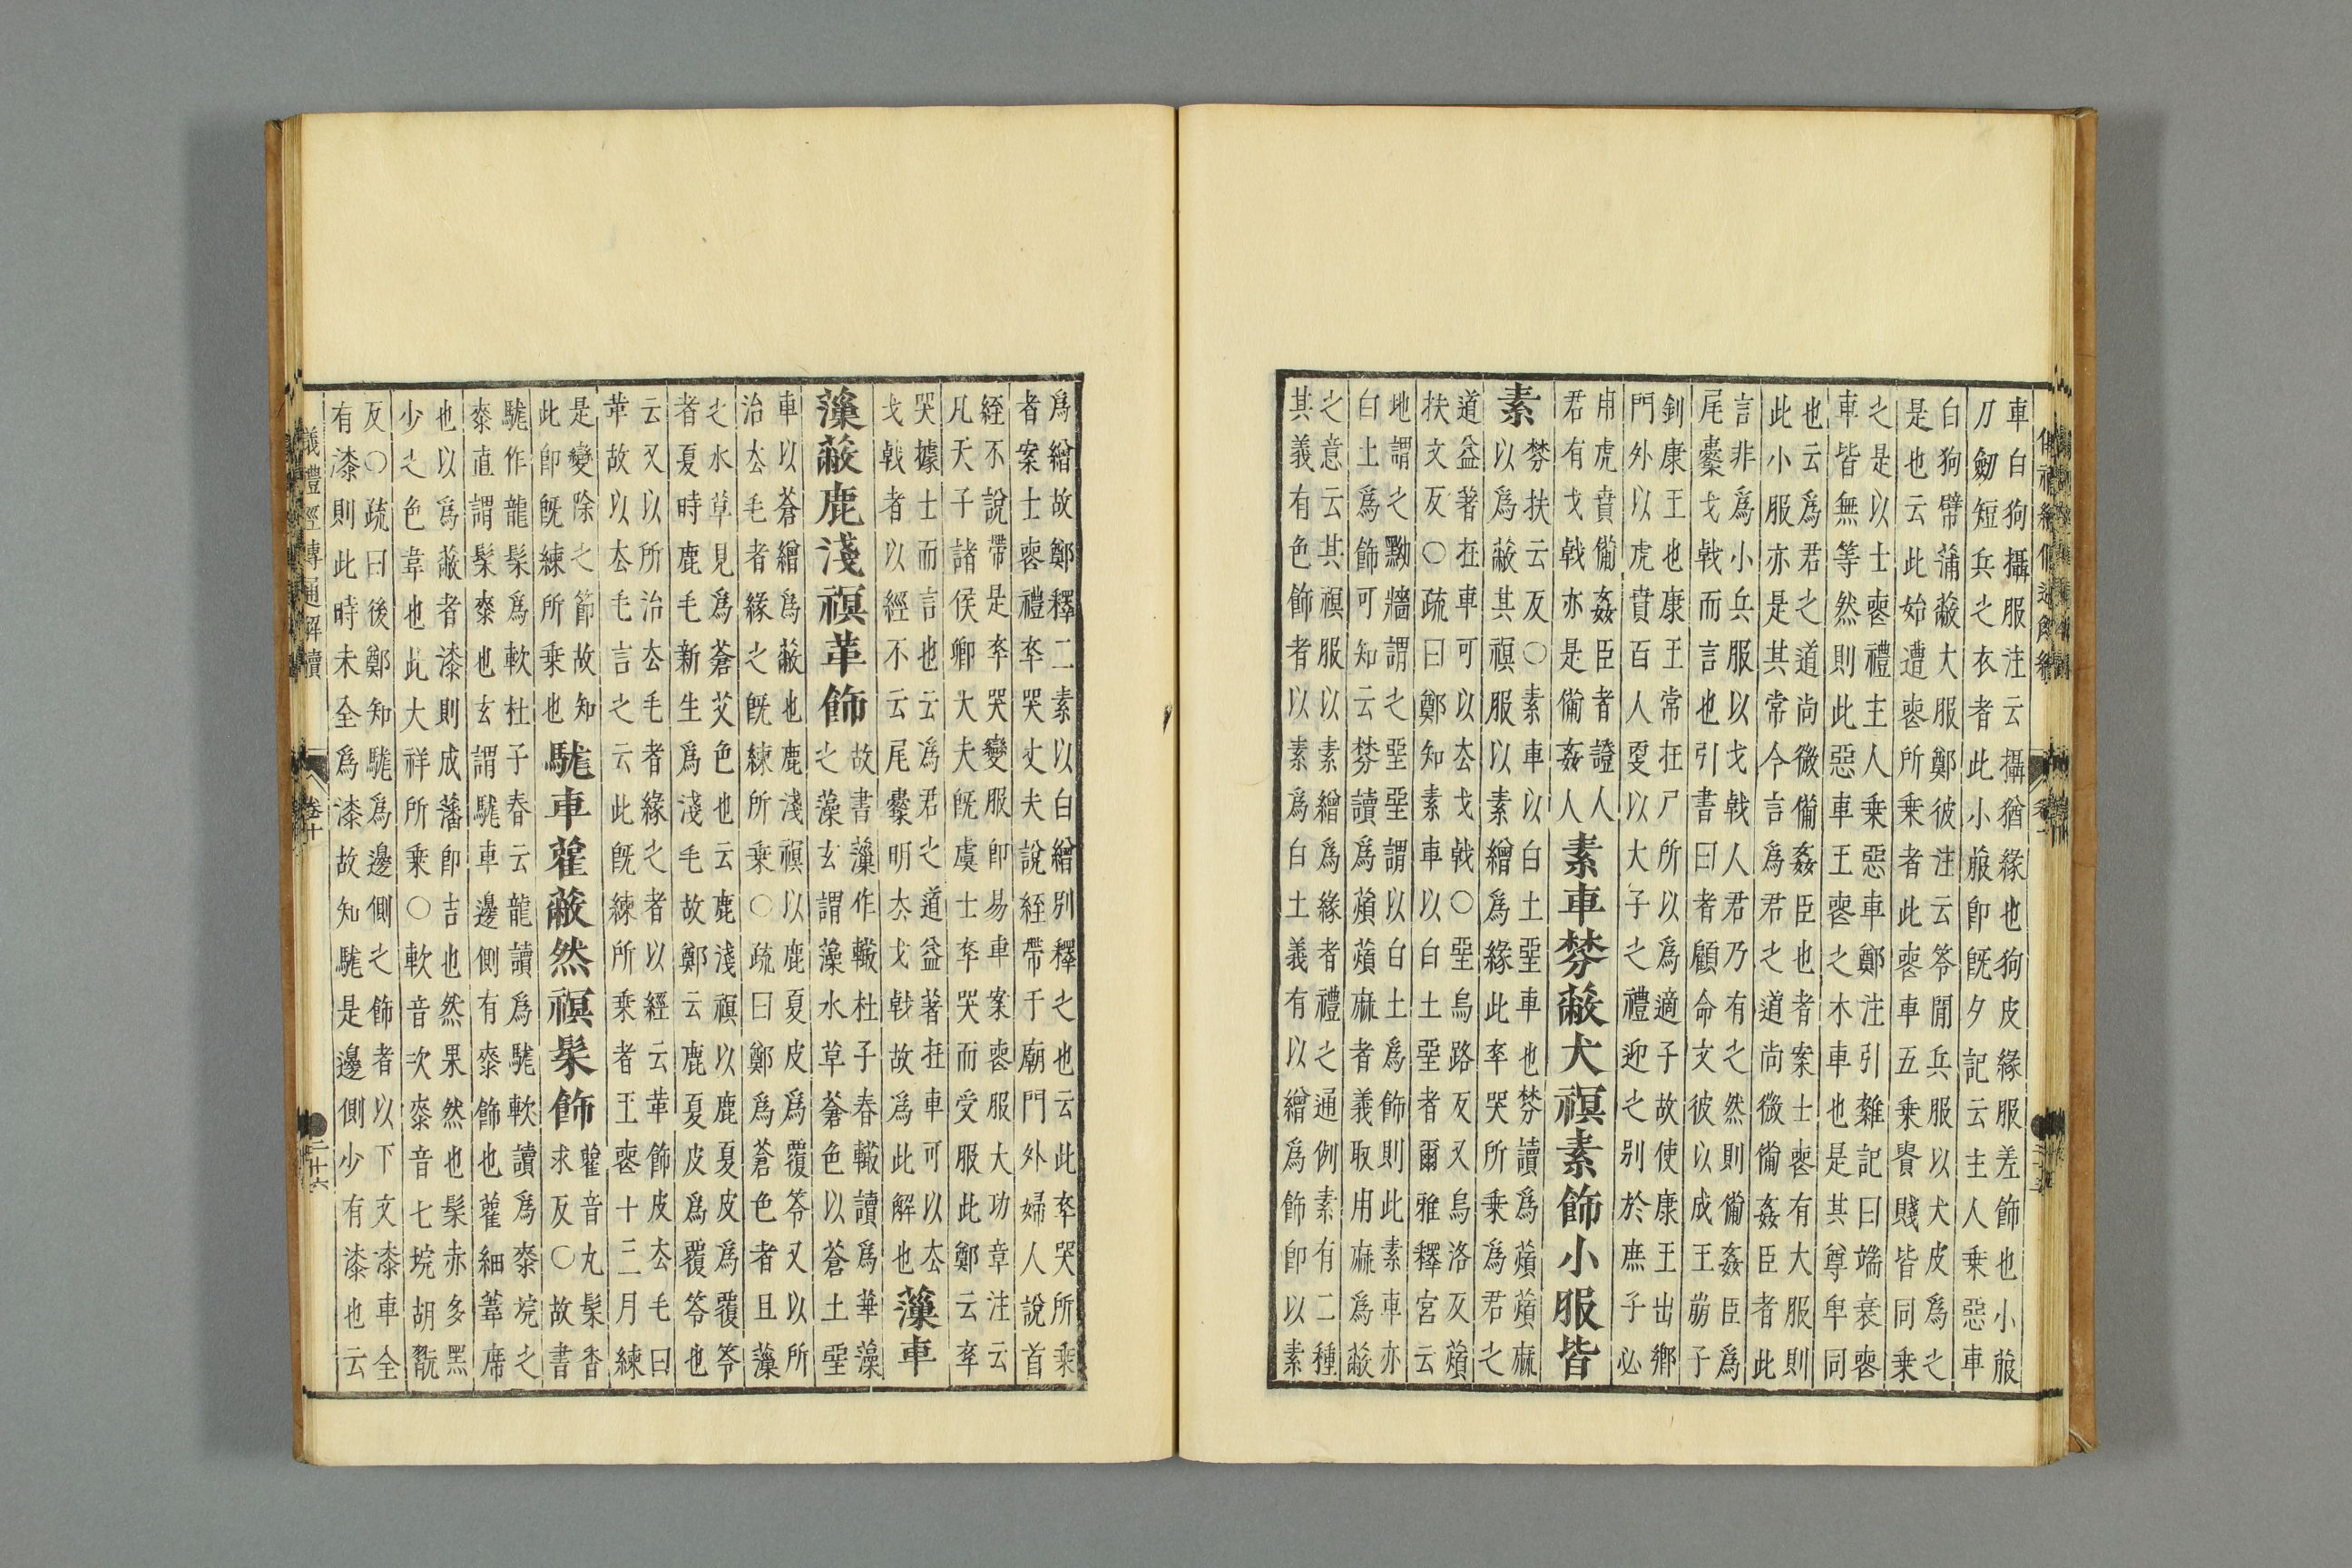 車白狗攝服注云攝猶緣也狗皮緣服差飾也小服
刀劒短兵之衣者此小服卽旣夕記云主人乗惡車
白狗幦蒲蔽犬服鄭彼注云笭閒兵服以犬皮爲之
是也云此始遭䘮所乗者此䘮車五乗貴賤皆同乗
之是以士䘮禮主人乗惡車鄭注引雜記曰端衰䘮
車皆無等然則此惡車王䘮之木車也是其尊卑同
也云爲君之道尚微僃姦臣也者案士䘮有大服則
此小服亦是其常今言爲君之道尚微僃姦臣者此
言非爲小兵服以戈戟人君乃有之然則僃姦臣爲
尾櫜戈戟而言也引書曰者顧命文彼以成王崩子
釗康王也康王常在尸所以爲適子故使康王出鄉
門外以虎賁百人更以大子之禮迎之别於庶子必
用虎賁僃姦臣者證人
君有戈戟亦是僃姦人
素車棼蔽犬䄙素飾小服皆
素
棼扶云反○素車以白土堊車也棼讀爲薠薠麻
以爲蔽其䄙服以素繒爲緣此卒哭所乗爲君之
道益著在車可以去戈戟○堊烏路反又烏洛反薠
扶文反○疏曰鄭知素車以白土堊者爾雅釋宮云
地謂之黝牆謂之堊堊謂以白土爲飾則此素車亦
白土爲飾可知云棼讀爲薠薠麻者義取用麻爲蔽
之意云其䄙服以素繒爲緣者禮之通例素有二種
其義有色飾者以素爲白土義有以繒爲飾卽以素
爲繒故鄭釋二素以白繒别釋之也云此卒哭所乗
者案士䘮禮卒哭丈夫說絰帶于廟門外婦人說首
絰不說帶是卒哭變服卽易車案䘮服大功章注云
凡天子諸侯卿大夫旣虞士卒哭而受服此鄭云卒
哭據士而言也云爲君之道益著在車可以去
戈戟者以經不云尾櫜明去戈戟故爲此解也
薻車
薻蔽鹿淺䄙革飾
故書薻作轍杜子春轍讀爲華藻
之藻玄謂藻水草蒼色以蒼土堊
車以蒼繒爲蔽也鹿淺䄙以鹿夏皮爲覆笭又以所
治去毛者緣之旣練所乗○疏曰鄭爲蒼色者且薻
之水草見爲蒼艾色也云鹿淺䄙以鹿夏皮爲覆笭
者夏時鹿毛新生爲淺毛故鄭云鹿夏皮爲覆笭也
云又以所治去毛者緣之者以經云革飾皮去毛曰
革故以去毛言之云此旣練所乗者王䘮十三月練
是變除之節故知
此卽旣練所乗也
駹車雚蔽然䄙髹飾
雚音丸髹香
求反○故書
駹作龍髹爲軟杜子春云龍讀爲駹軟讀爲桼垸之
桼直謂髹桼也玄謂駹車邊側有桼飾也雚細葦席
也以爲蔽者漆則成藩卽吉也然果然也髹赤多黑
少之色韋也此大祥所乗○軟音次桼音七垸胡翫
反○疏曰後鄭知駹爲邊側之飾者以下文漆車全
有漆則此時未全爲漆故知駹是邊側少有漆也云
儀禮經傳通解續
卷十
二十六